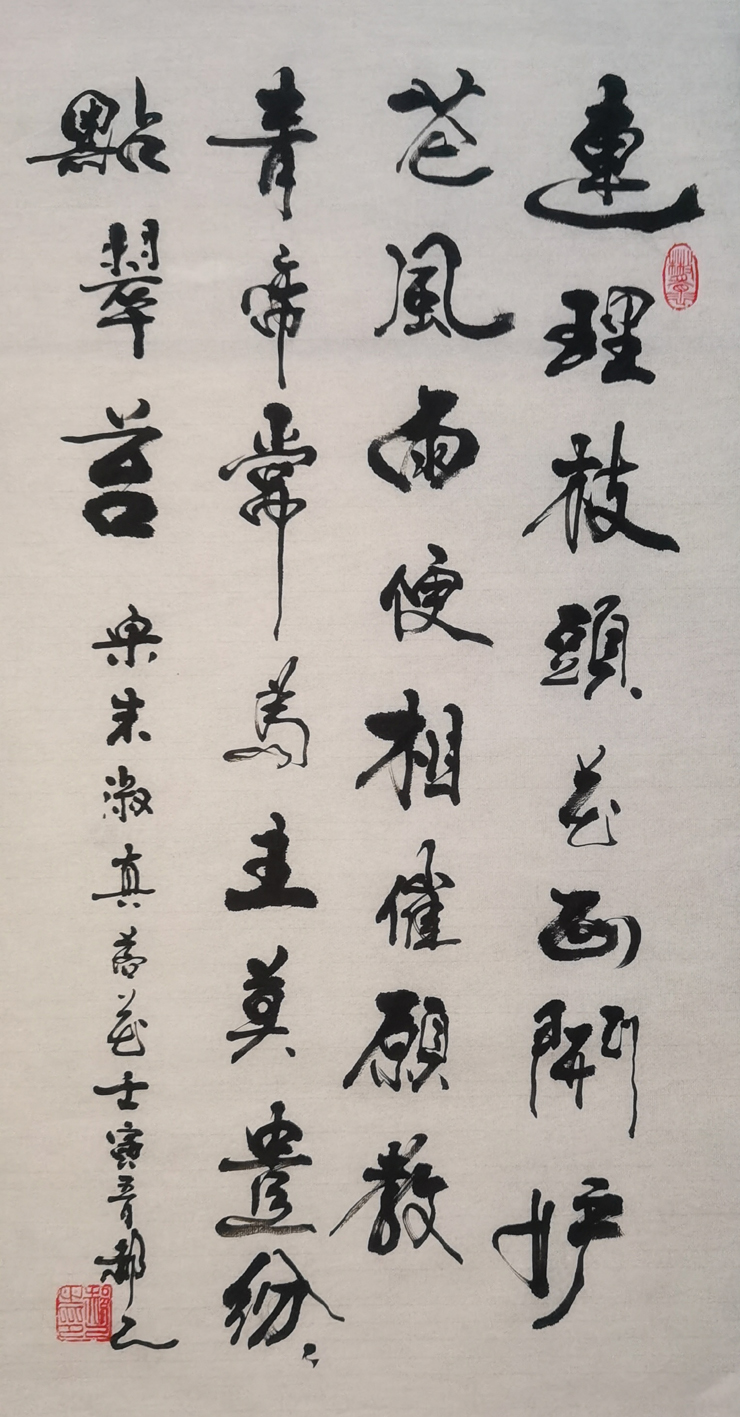 連理枝頭花正開妒
花風雨便相催願教
青帝常為主莫遣紛々
點翠苔
宋朱淑真落花壬寅 郝